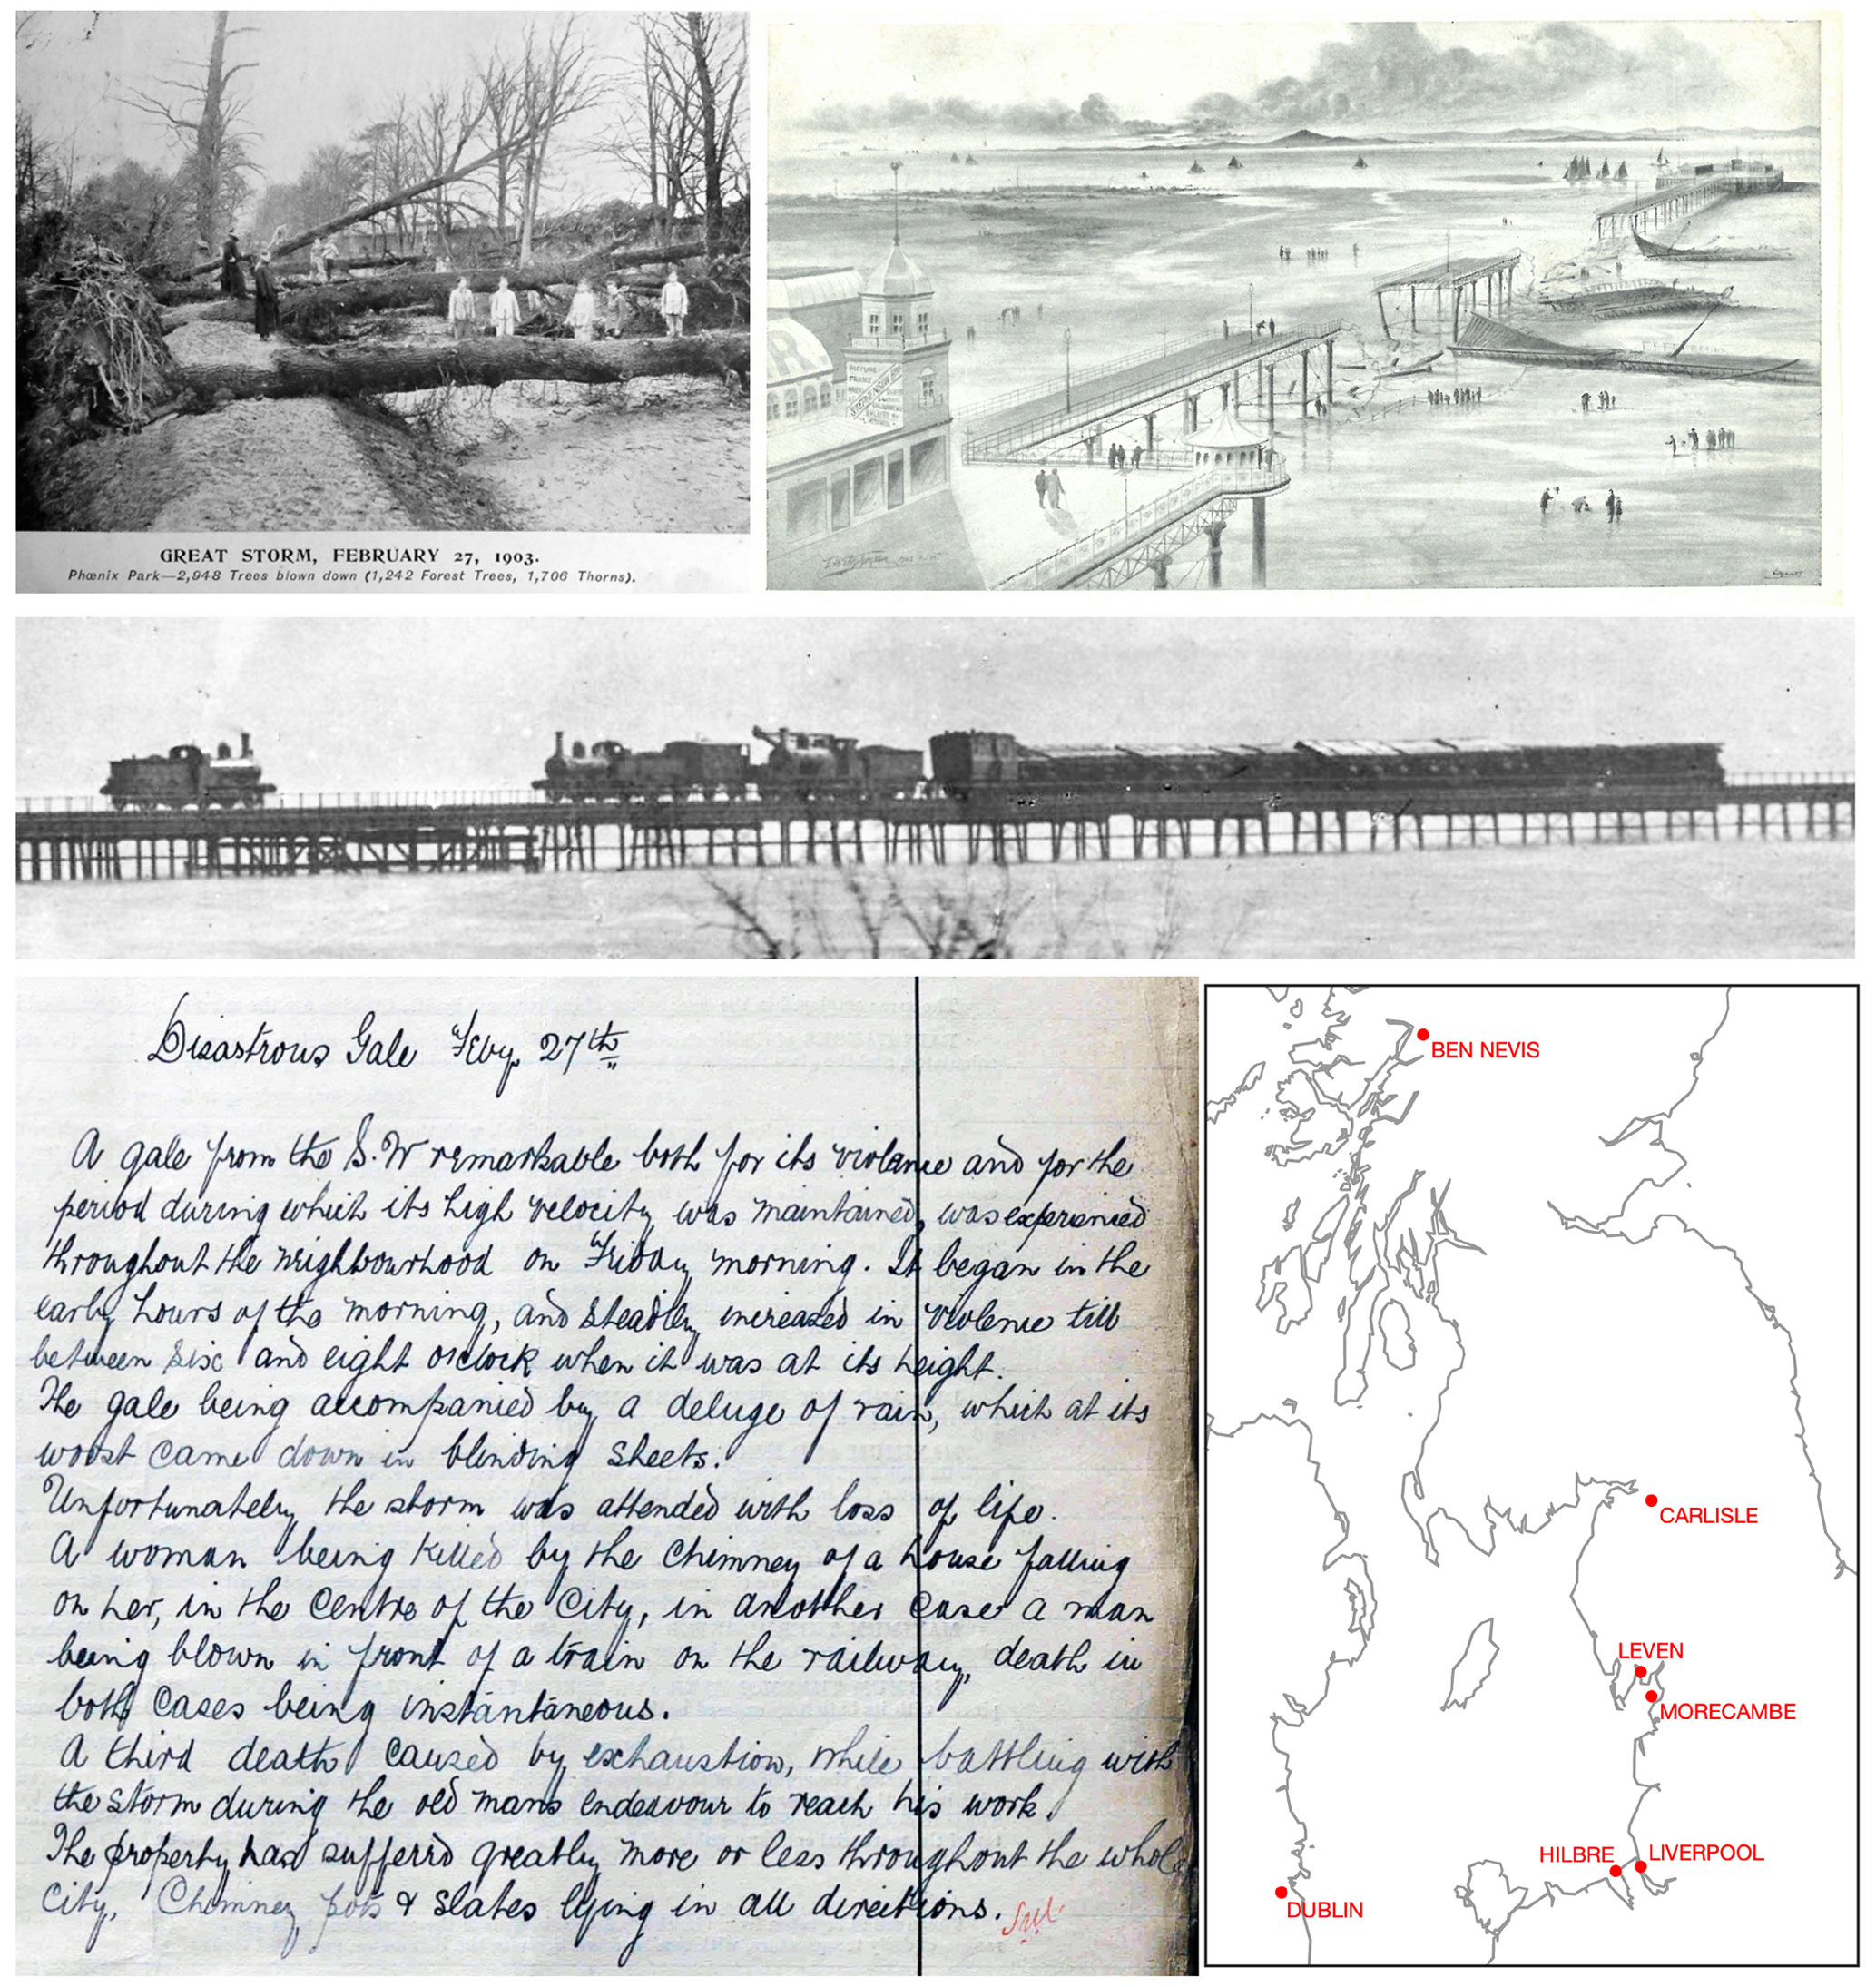 GREAT STORM, FEBRUARY 27, 1903.
Phœnix Park—2,948 Trees blown down (1,242 Forest Trees, 1,706 Thorns).
Disastrous Gale Feby 27th
A gale from the S.W remarkable both for its violence and for the
period during which its high velocity was maintained, was experienced
throughout the neighbourhood on Friday morning. It began in the
early hours of the morning, and steadily increased in violence till
between six and eight o'clock when it was at its height.
The gale being accompanied by a deluge of rain, which at its
worst came down in blinding sheets.
Unfortunately the storm was attended with loss of life.
A woman being killed by the chimney of a house falling
on her, in the centre of the City, in another case a man
being blown in front of a train on the railway, death in
both cases being instantaneous.
A third death caused by exhaustion, while battling with
the storm during the old mans endeavour to reach his work.
The property has suffered greatly more or less throughout the whole
City. Chimney pots & slates lying in all directions.
BEN NEVIS
CARLISLE
LEVEN
MORECAMBE
HILBRE
LIVERPOOL
DUBLIN